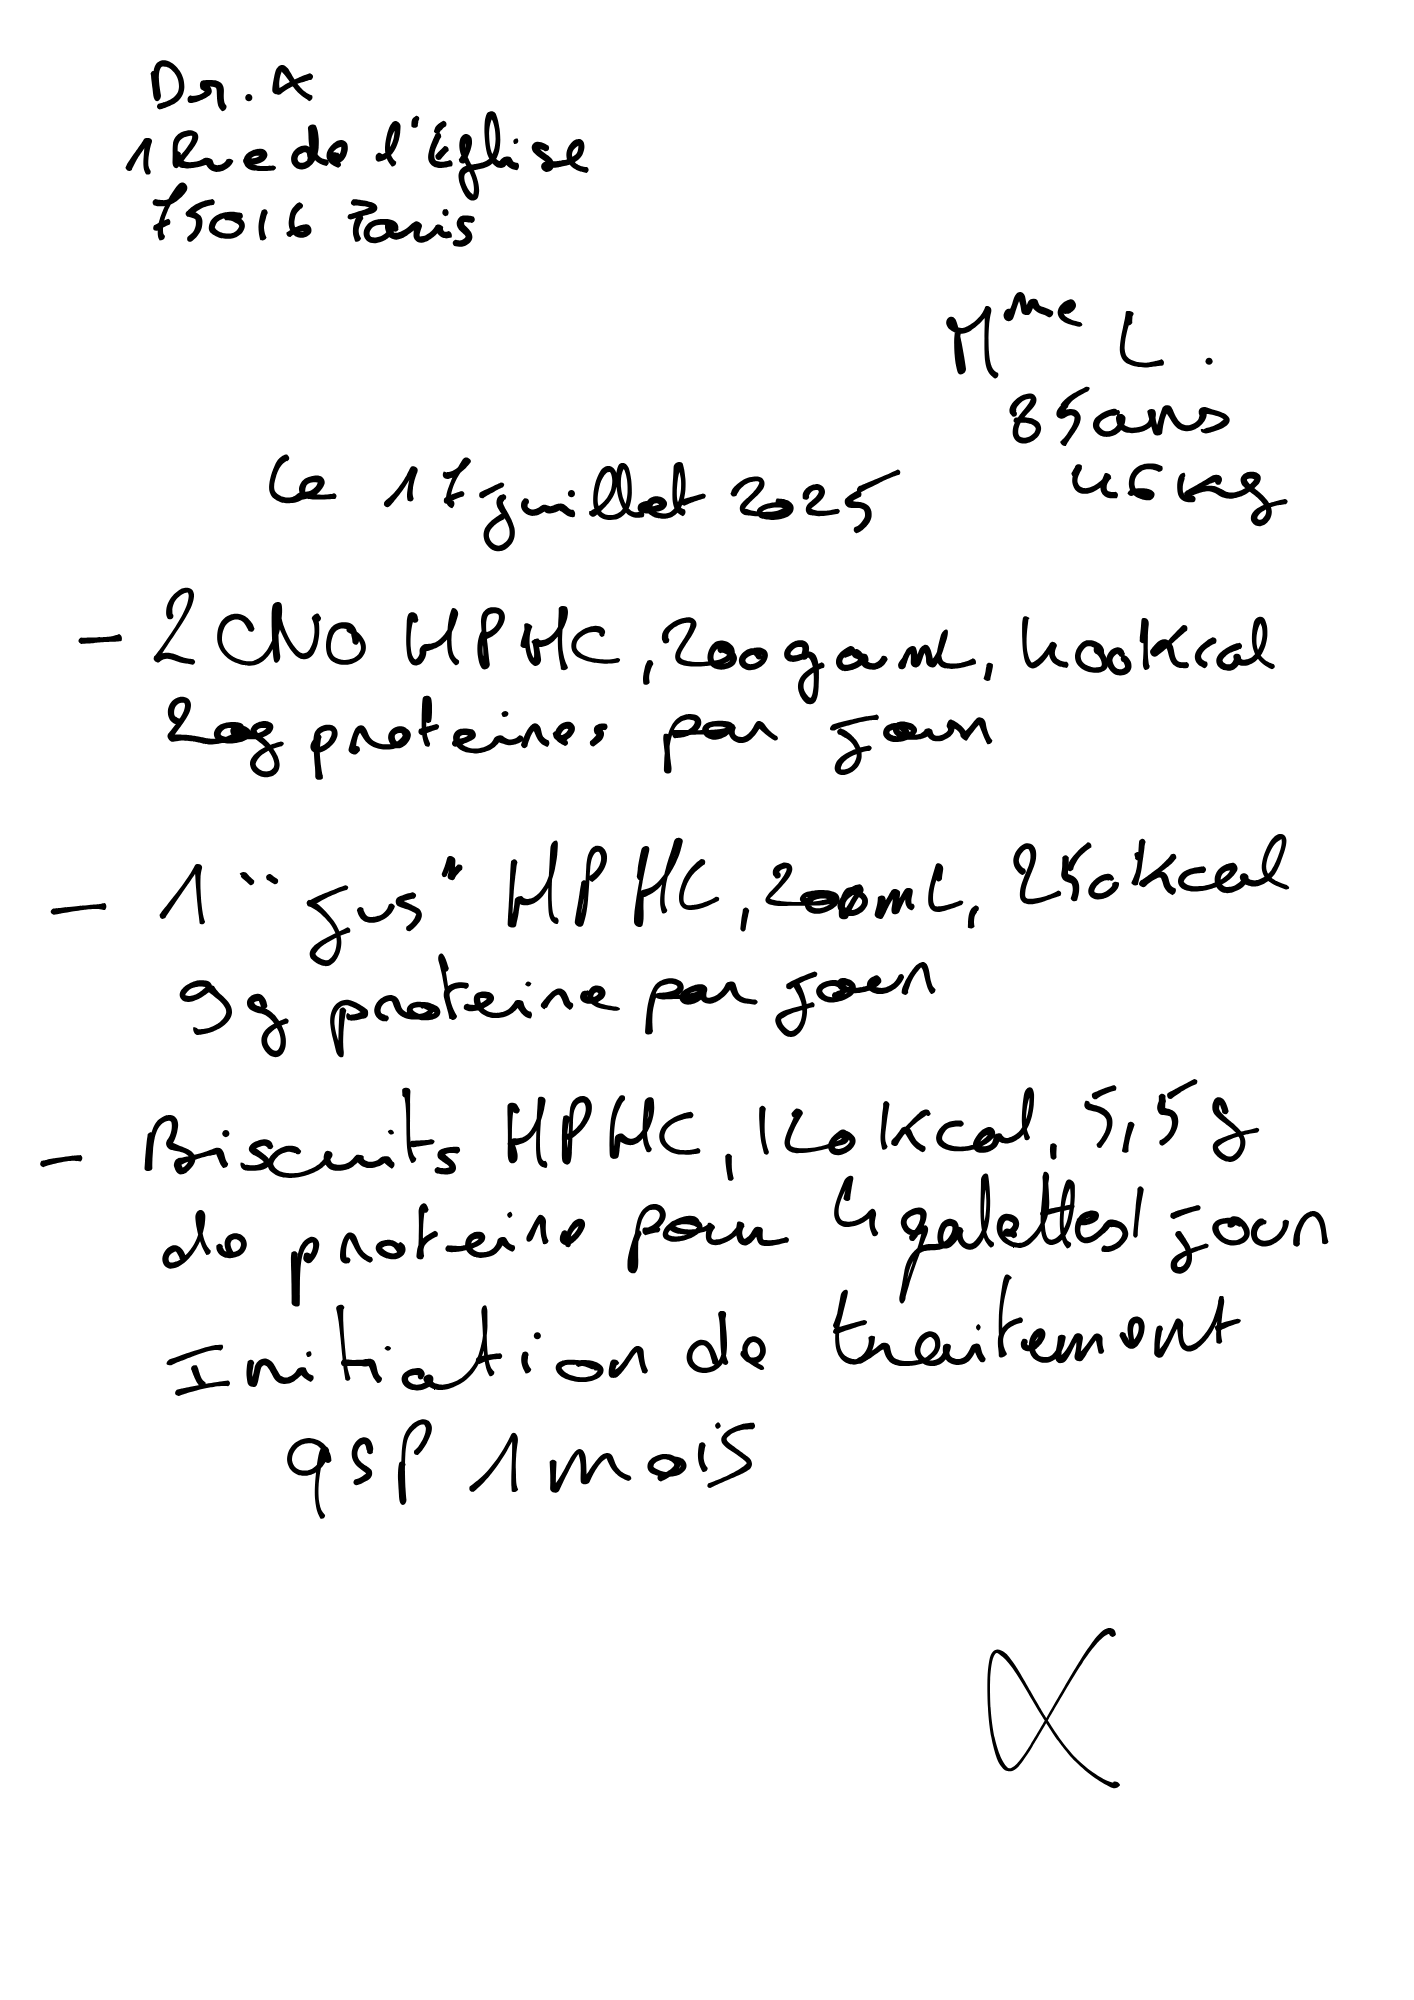 Dr. X
1 Rue de l'Église
75016 Paris
Mme L.
85ans
46kg
Le 17 juillet 2025
- 2 CNO HPHC, 200g ou mL, 400kcal
20g proteines par jour
- 1 "jus" HPHC, 200mL, 250kcal
9g proteine par jour
- Biscuits HPHC, 120kcal, 5,5g
de proteine pour 4 galettes/jour
Initiation de traitement
qsp 1 mois
X